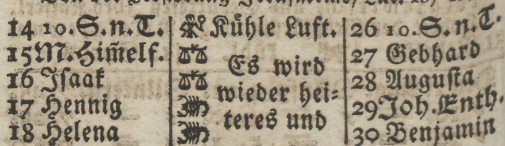 14 10. S. n. T. Kühle Luft. 26 10. S. n. T.
15 M. Him̃elf. Es wird 27 Gebhard
16 Isaak wieder hei= 28 Augusta
17 Hennig teres und 29 Joh. Enth.
18 Helena 30 Benjamin